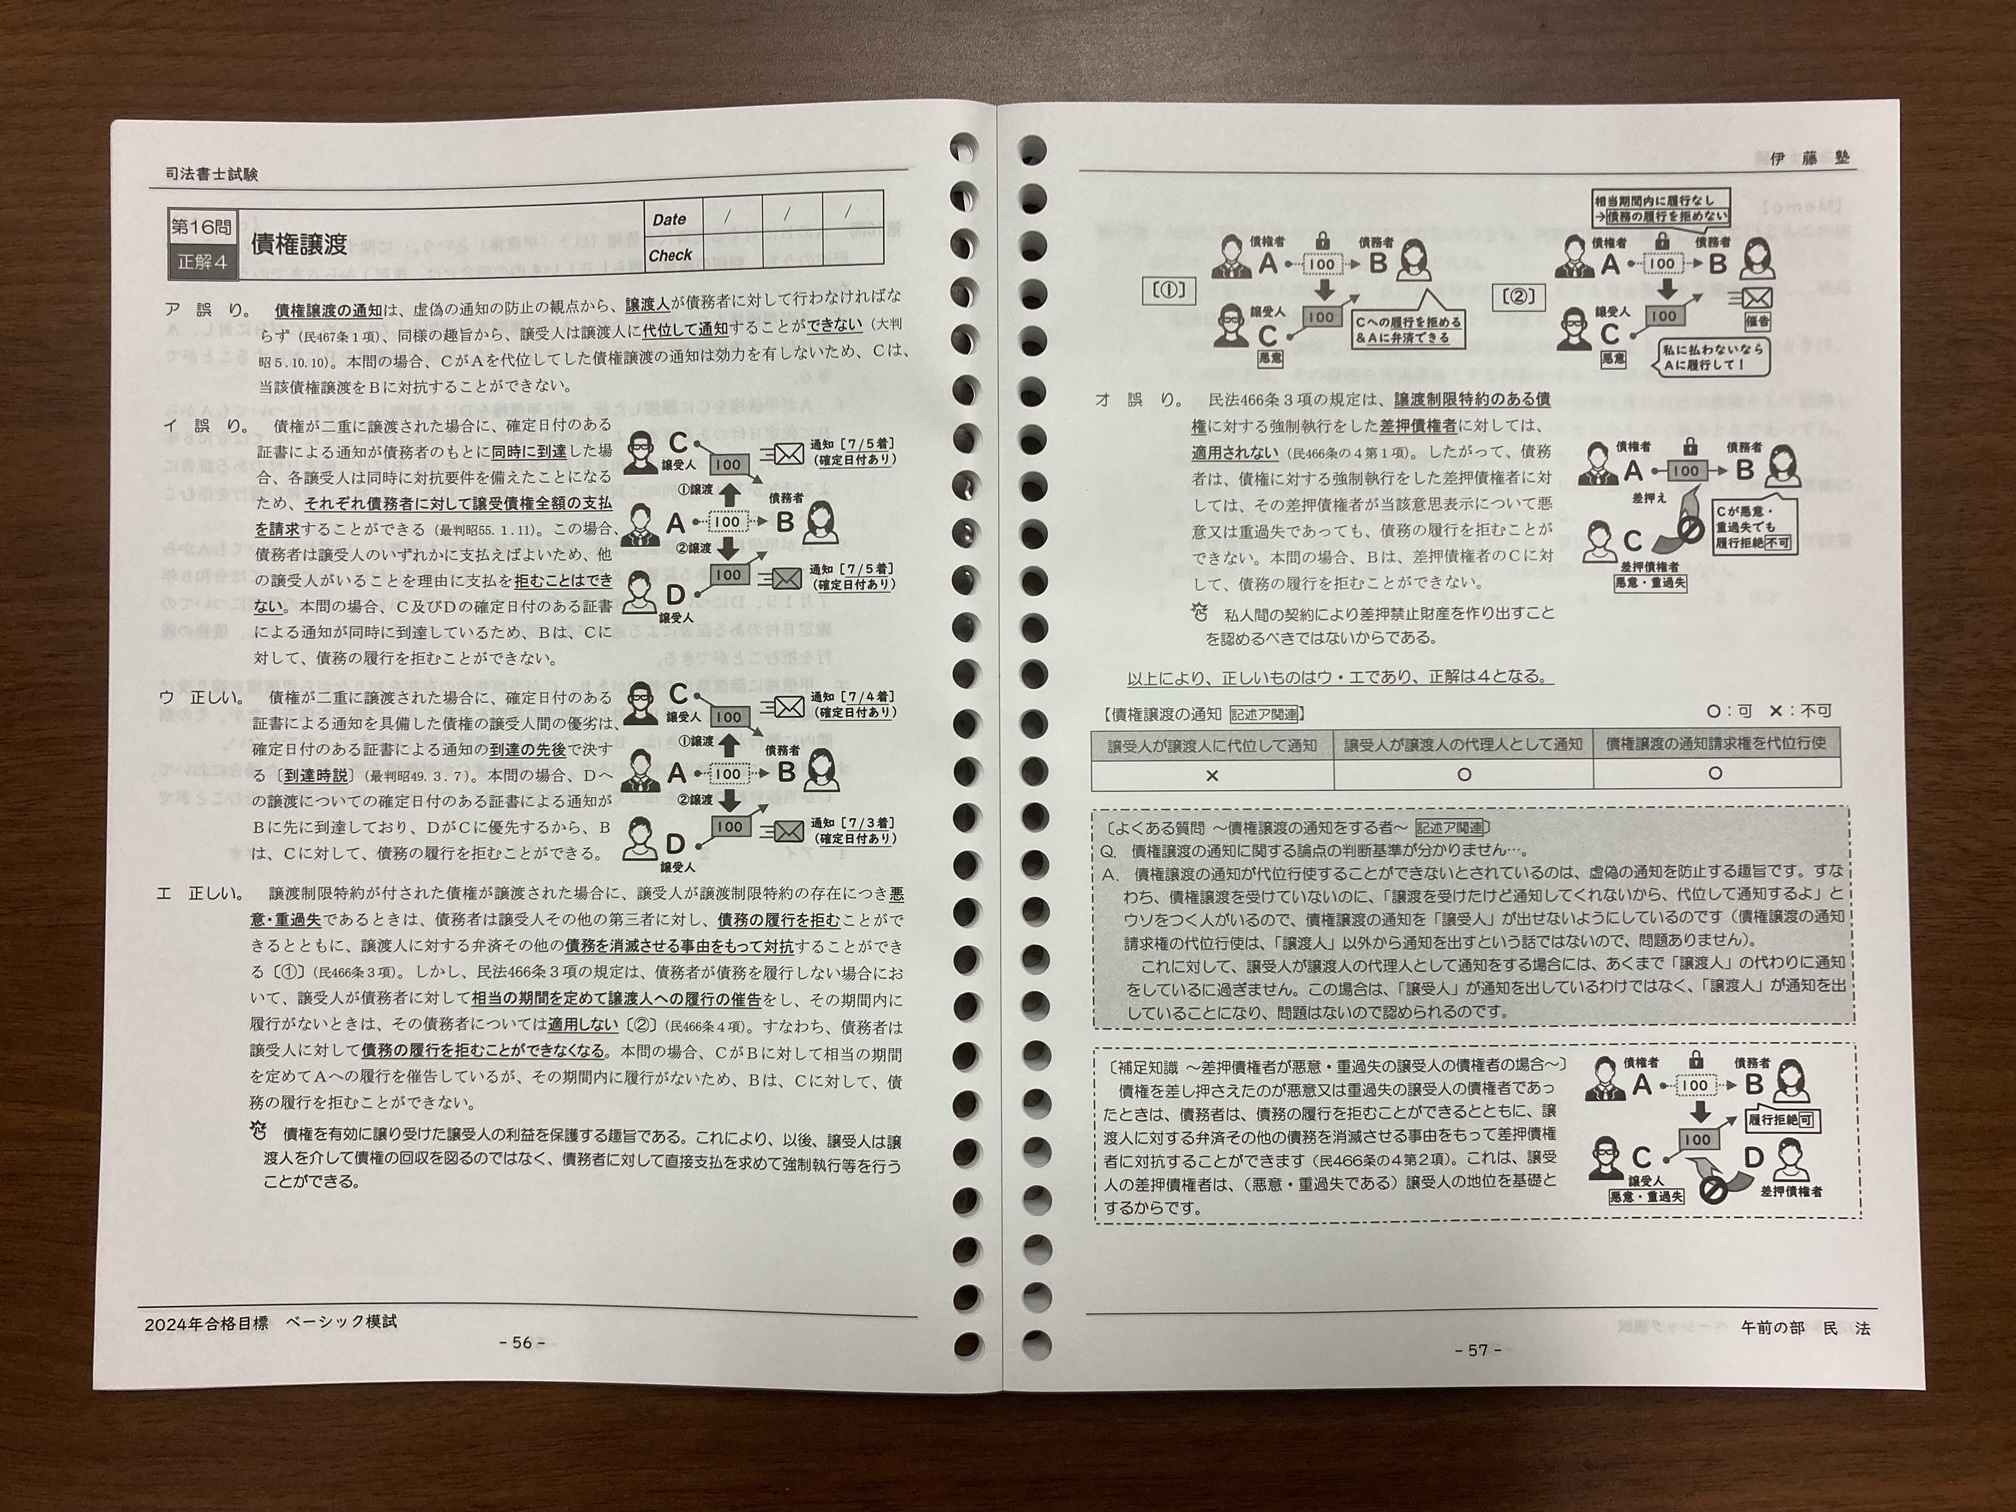 司法書士試験
第16問
正解4
債権譲渡
Date / / /
Check
ア 誤 り。 債権譲渡の通知は、虚偽の通知の防止の観点から、譲渡人が債務者に対して行わなければな
らず(民467条1項)、同様の趣旨から、譲受人は譲渡人に代位して通知することができない(大判
昭5.10.10)。本問の場合、CがAを代位してした債権譲渡の通知は効力を有しないため、Cは、
当該債権譲渡をBに対抗することができない。
イ 誤 り。 債権が二重に譲渡された場合に、確定日付のある
証書による通知が債務者のもとに同時に到達した場
合、各譲受人は同時に対抗要件を備えたことになる
ため、それぞれ債務者に対して譲受債権全額の支払
を請求することができる(最判昭55.1.11)。この場合、
債務者は譲受人のいずれかに支払えばよいため、他
の譲受人がいることを理由に支払を拒むことはでき
ない。本問の場合、C及びDの確定日付のある証書
による通知が同時に到達しているため、Bは、Cに
対して、債務の履行を拒むことができない。
C
譲受人
100
通知[7/5着]
(確定日付あり)
①譲渡
債務者
A
100
B
②譲渡
100
通知[7/5着]
(確定日付あり)
D
譲受人
ウ 正しい。 債権が二重に譲渡された場合に、確定日付のある
証書による通知を具備した債権の譲受人間の優劣は、
確定日付のある証書による通知の到達の先後で決す
る〔到達時説〕(最判昭49.3.7)。本問の場合、Dへ
の譲渡についての確定日付のある証書による通知が
Bに先に到達しており、DがCに優先するから、B
は、Cに対して、債務の履行を拒むことができる。
C
譲受人
100
通知[7/4着]
(確定日付あり)
①譲渡
債務者
A
100
B
②譲渡
100
通知[7/3着]
(確定日付あり)
D
譲受人
エ 正しい。 譲渡制限特約が付された債権が譲渡された場合に、譲受人が譲渡制限特約の存在につき悪
意・重過失であるときは、債務者は譲受人その他の第三者に対し、債務の履行を拒むことがで
きるとともに、譲渡人に対する弁済その他の債務を消滅させる事由をもって対抗することができ
る〔①〕(民466条3項)。しかし、民法466条3項の規定は、債務者が債務を履行しない場合にお
いて、譲受人が債務者に対して相当の期間を定めて譲渡人への履行の催告をし、その期間内に
履行がないときは、その債務者については適用しない〔②〕(民466条4項)。すなわち、債務者は
譲受人に対して債務の履行を拒むことができなくなる。本問の場合、CがBに対して相当の期間
を定めてAへの履行を催告しているが、その期間内に履行がないため、Bは、Cに対して、債
務の履行を拒むことができない。
債権を有効に譲り受けた譲受人の利益を保護する趣旨である。これにより、以後、譲受人は譲
渡人を介して債権の回収を図るのではなく、債務者に対して直接支払を求めて強制執行等を行う
ことができる。
2024年合格目標 ベーシック模試
- 56 -
伊 藤 塾
〔①〕
債権者
A
100
債務者
B
譲受人
C
悪意
100
Cへの履行を拒める
&Aに弁済できる
〔②〕
相当期間内に履行なし
→債務の履行を拒めない
債権者
A
100
債務者
B
譲受人
C
悪意
100
催告
私に払わないなら
Aに履行して!
オ 誤 り。 民法466条3項の規定は、譲渡制限特約のある債
権に対する強制執行をした差押債権者に対しては、
適用されない(民466条の4第1項)。したがって、債務
者は、債権に対する強制執行をした差押債権者に対
しては、その差押債権者が当該意思表示について悪
意又は重過失であっても、債務の履行を拒むことが
できない。本問の場合、Bは、差押債権者のCに対
して、債務の履行を拒むことができない。
私人間の契約により差押禁止財産を作り出すこと
を認めるべきではないからである。
債権者
A
100
債務者
B
差押え
C
差押債権者
悪意・重過失
Cが悪意・
重過失でも
履行拒絶不可
以上により、正しいものはウ・エであり、正解は4となる。
【債権譲渡の通知 記述ア関連】
○:可 ×:不可
譲受人が譲渡人に代位して通知 譲受人が譲渡人の代理人として通知 債権譲渡の通知請求権を代位行使
× ○ ○
〔よくある質問 ~債権譲渡の通知をする者~ 記述ア関連〕
Q. 債権譲渡の通知に関する論点の判断基準が分かりません…。
A. 債権譲渡の通知が代位行使することができないとされているのは、虚偽の通知を防止する趣旨です。すな
わち、債権譲渡を受けていないのに、「譲渡を受けたけど通知してくれないから、代位して通知するよ」と
ウソをつく人がいるので、債権譲渡の通知を「譲受人」が出せないようにしているのです(債権譲渡の通知
請求権の代位行使は、「譲渡人」以外から通知を出すという話ではないので、問題ありません)。
これに対して、譲受人が譲渡人の代理人として通知をする場合には、あくまで「譲渡人」の代わりに通知
をしているに過ぎません。この場合は、「譲受人」が通知を出しているわけではなく、「譲渡人」が通知を出
していることになり、問題はないので認められるのです。
〔補足知識 ~差押債権者が悪意・重過失の譲受人の債権者の場合~〕
債権を差し押さえたのが悪意又は重過失の譲受人の債権者であっ
たときは、債務者は、債務の履行を拒むことができるとともに、譲
渡人に対する弁済その他の債務を消滅させる事由をもって差押債権
者に対抗することができます(民466条の4第2項)。これは、譲受
人の差押債権者は、(悪意・重過失である)譲受人の地位を基礎と
するからです。
債権者
A
100
債務者
B
履行拒絶可
100
C
譲受人
悪意・重過失
D
差押債権者
午前の部 民 法
- 57 -